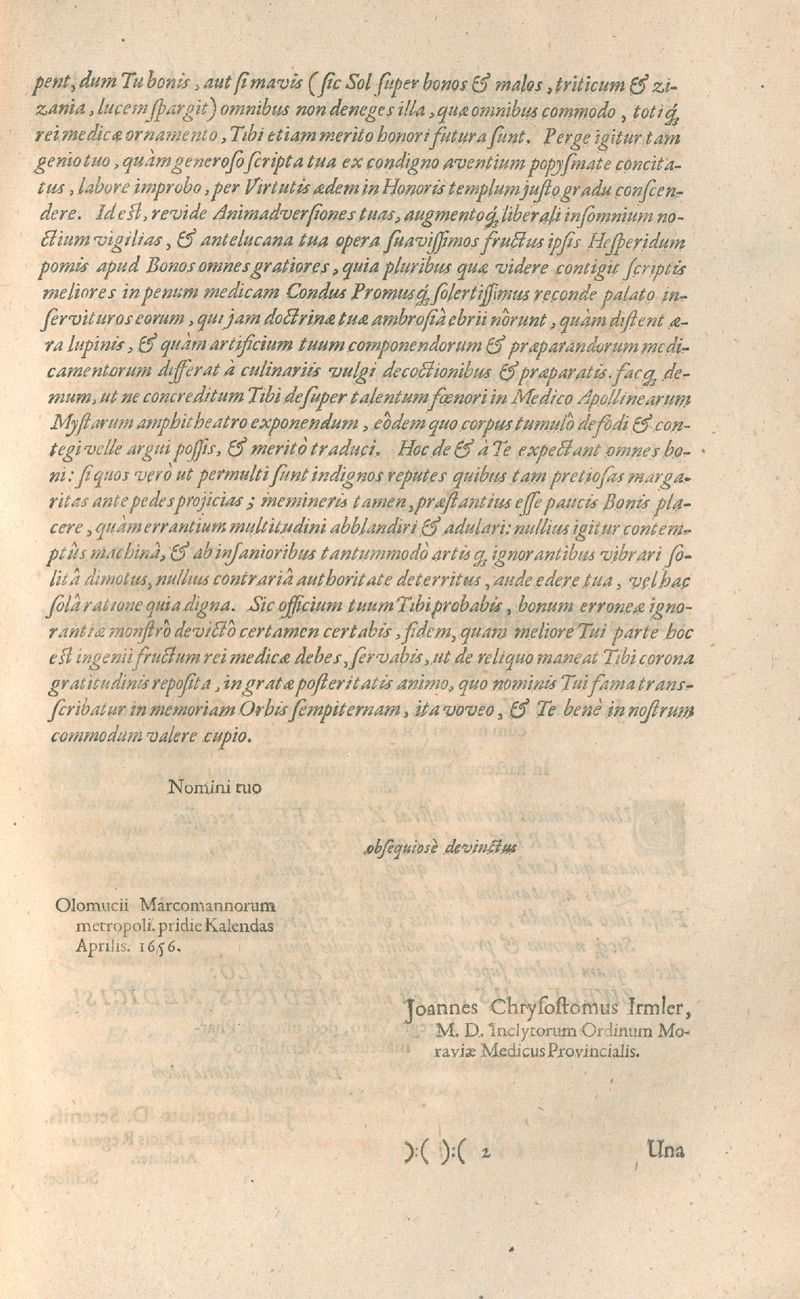 pent, dum Tu bonis, aut ſi mavis (ſic Sol ſuper bonos & malos, triticum & zi-
zania, lucem ſpargit) omnibus non deneges illa, quæ omnibus commodo, totiq́;
rei medicæ ornamento, Tibi etiam merito honori futura ſunt. Perge igitur tam
genio tuo, quàm generoſo ſcripta tua ex condigno aventium popyſmate concita-
tus, labore improbo, per Virtutis ædem in Honoris templum juſto gradu conſcen-
dere. Id eſt, revide Animadverſiones tuas, augmentoq́; liberali inſomnium no-
ctium vigilias, & antelucana tua opera ſuaviſſimos fructus ipſis Heſperidum
pomis apud Bonos omnes gratiores, quia pluribus quæ videre contigit ſcriptis
meliores in penum medicam Condus Promusq́; ſolertiſſimus reconde palato in-
ſervituros eorum, qui jam doctrinæ tuæ ambroſiâ ebrii nôrunt, quàm diſtent æ-
ra lupinis, & quàm artificium tuum componendorum & præparandorum medi-
camentorum differat à culinariis vulgi decoctionibus & præparatis. facq; de-
mum, ut ne concreditum Tibi deſuper talentum fœnori in Medico Apollinearum
Myſtarum amphitheatro exponendum, eôdem quo corpus tumulô defodi & con-
tegi velle argui poſſis, & meritò traduci. Hoc de & à Te expectant omnes bo-
ni: ſi quos verò ut permulti ſunt indignos reputes quibus tam pretioſas marga-
ritas ante pedes projicias; memineris tamen, præſtantius eſſe paucis Bonis pla-
cere, quàm errantium multitudini abblandiri & adulari: nullius igitur contem-
ptûs machinâ, & ab inſanioribus tantummodò artisq; ignorantibus vibrari ſo-
litâ dimotus, nullius contrariâ authoritate deterritus, aude edere tua, vel hac
ſolâ ratione quia digna. Sic officium tuum Tibi probabis, bonum erroneæ igno-
rantiæ monſtrô devictô certamen certabis, fidem, quam meliore Tui parte hoc
eſt ingenii fructum rei medicæ debes, ſervabis, ut de reliquo maneat Tibi corona
gratitudinis repoſita, in gratæ poſteritatis animo, quo nominis Tui fama trans-
ſcribatur in memoriam Orbis ſempiternam, ita voveo, & Te benè in noſtrum
commodum valere cupio.
Nomini tuo
obſequiosè devinctus
Olomucii Marcomannorum
metropoli. pridie Kalendas
Aprilis. 1656.
Joannes Chryſoſtomus Irmler,
M. D. Inclytorum Ordinum Mo-
raviæ Medicus Provincialis.
):( ):( 2 Una